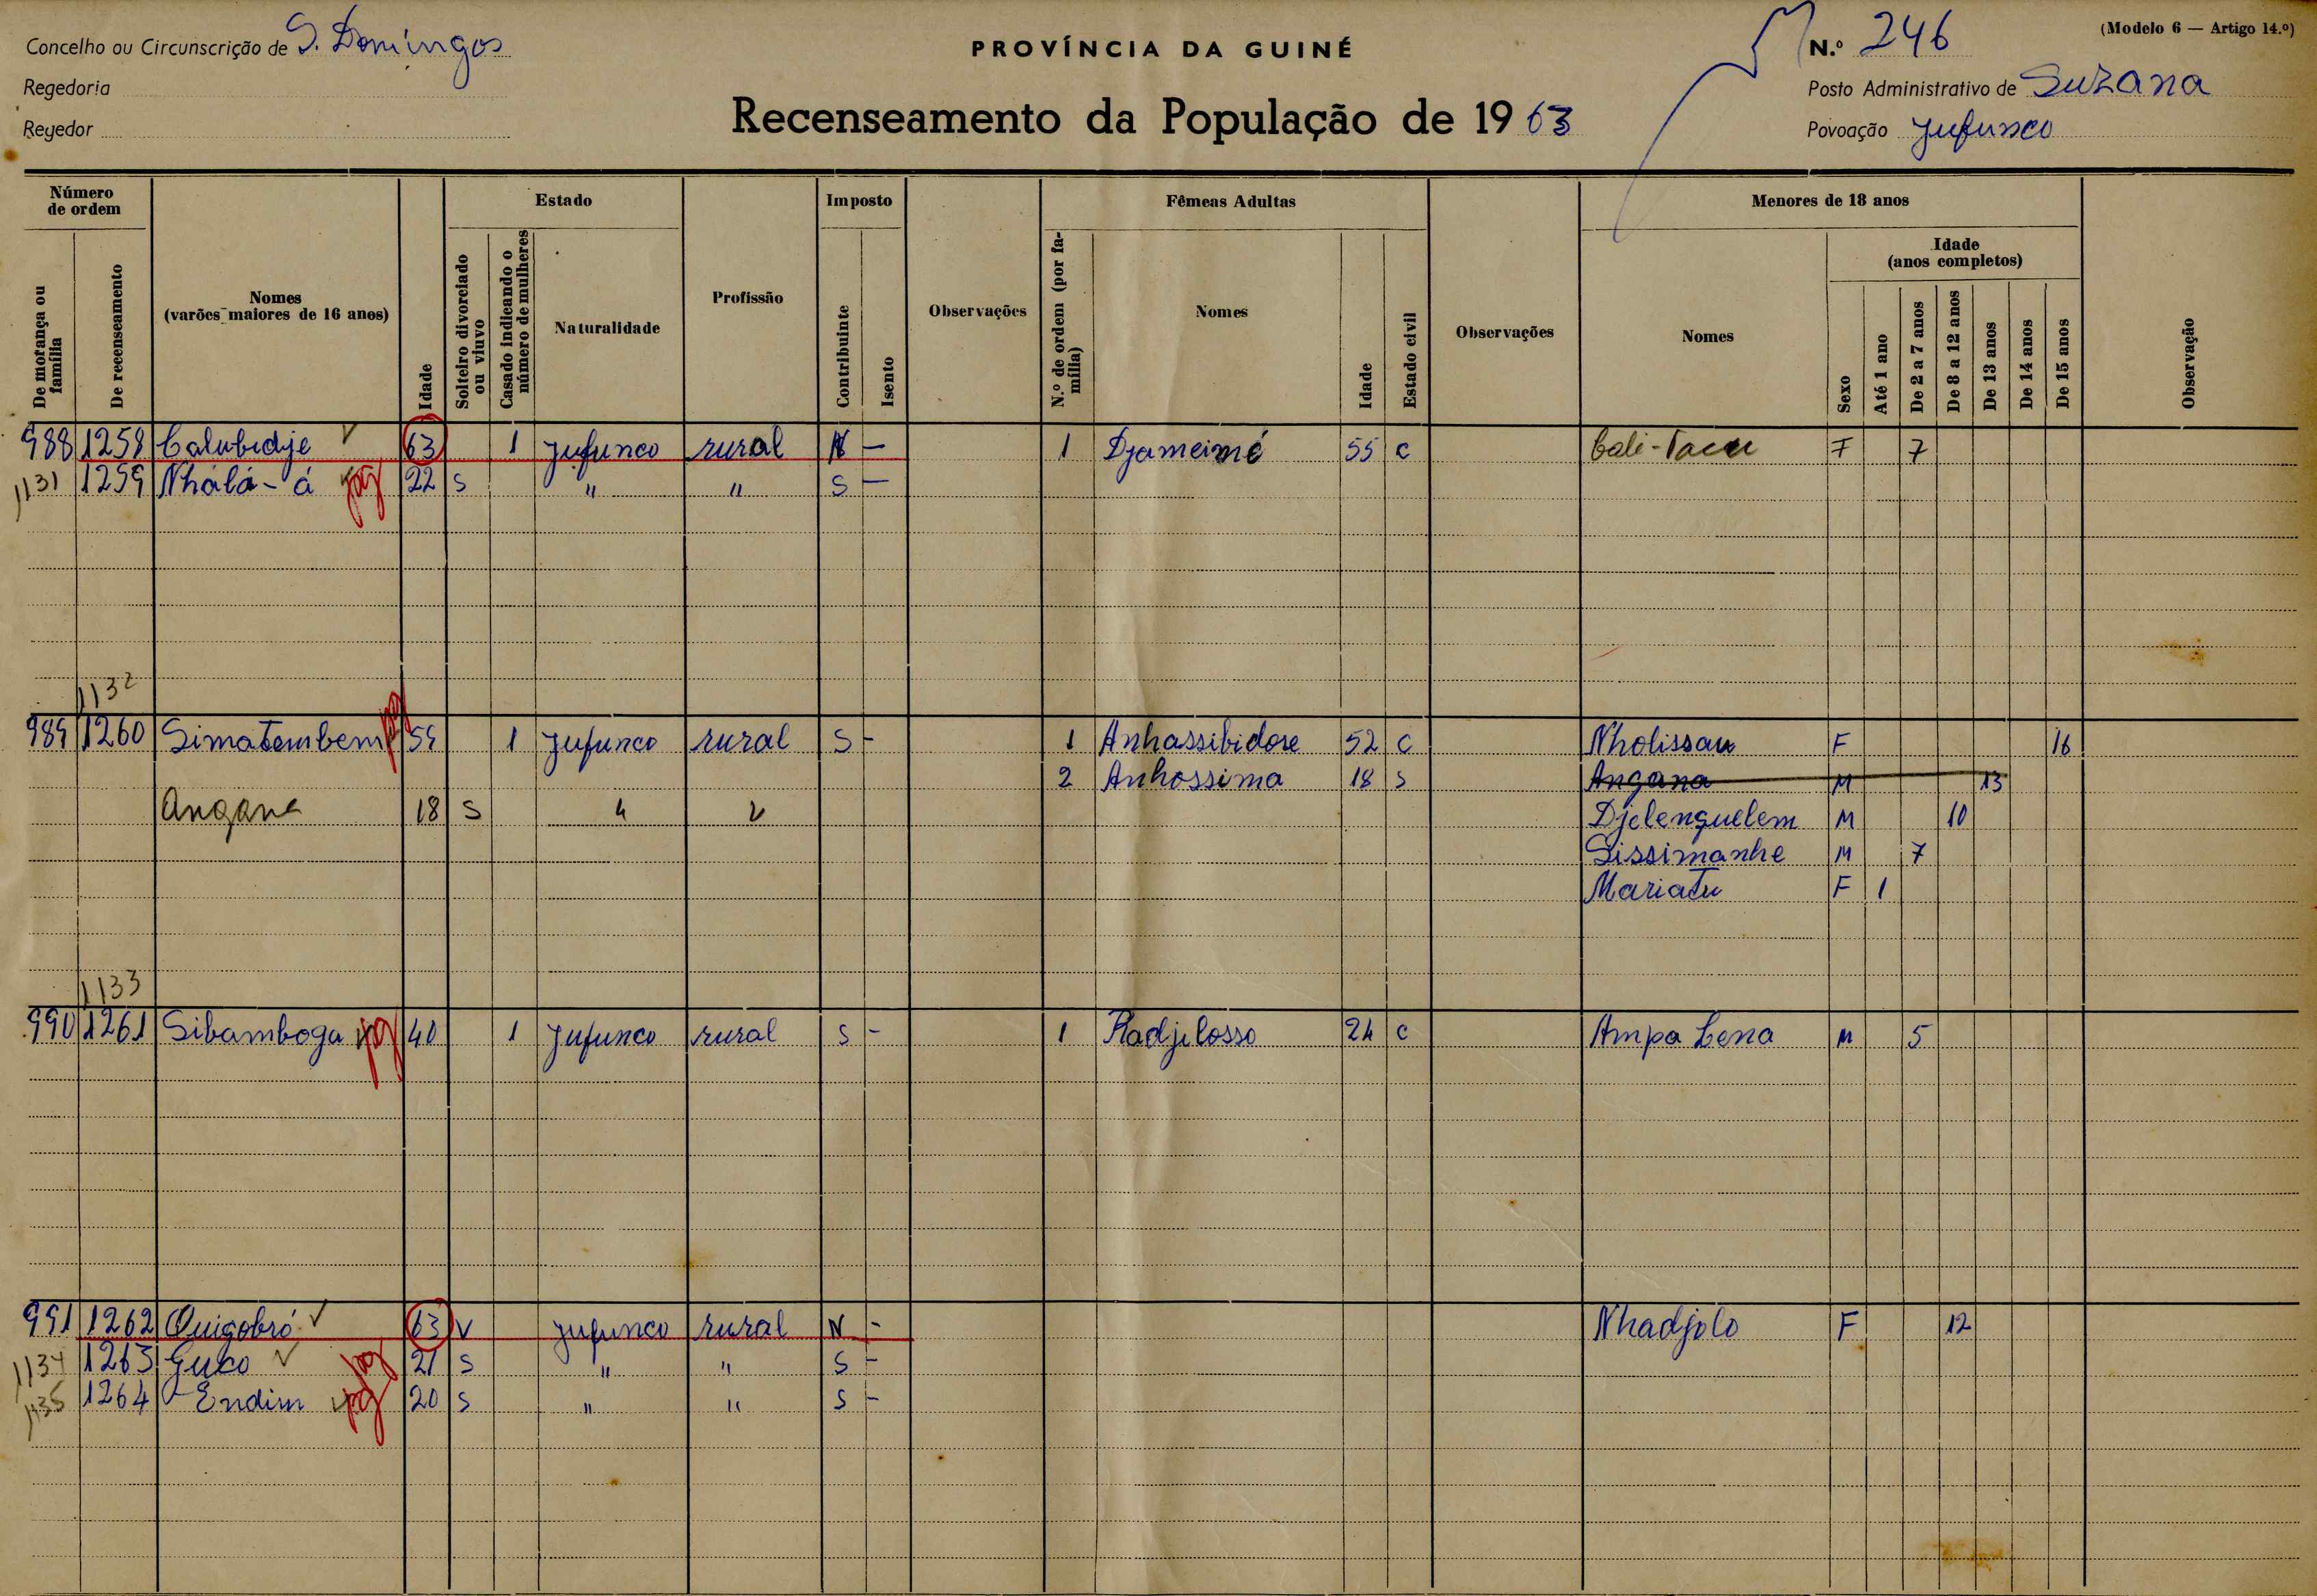 Concelho ou Circunscrição de S. Domingos
Regedoria
Regedor
PROVÍNCIA DA GUINÉ
Recenseamento da População de 1963
(Modelo 6 — Artigo 14.º)
N.º 246
Posto Administrativo de Suzana
Povoação Jufunco
Número de ordem
De morança ou família
De recenseamento
Nomes (varões maiores de 16 anos)
Idade
Estado
Solteiro divorciado ou viuvo
Casado indicando o número de mulheres
Naturalidade
Profissão
Imposto
Contribuinte
Isento
Observações
Fêmeas Adultas
N.º de ordem (por família)
Nomes
Idade
Estado civil
Observações
Menores de 18 anos
Nomes
Sexo
Idade (anos completos)
Até 1 ano
De 2 a 7 anos
De 8 a 12 anos
De 13 anos
De 14 anos
De 15 anos
Observação
988 1258 Calubidje 63 1 Jufunco rural N — 1 Djameimé 55 C Cali-Tacu F 7
1131 1259 Nhálá-á pg 22 S " " S —
1132
989 1260 Simatembem pg 59 1 Jufunco rural S - 1 Anhassibidore 52 C Nholissau F 16
2 Anhossima 18 S Angana M 13
Angana 18 S " " Djelenquelem M 10
Sissimanhe M 7
Mariatu F 1
1133
990 1261 Sibamboga pg 40 1 Jufunco rural S - 1 Radjilosso 24 C Ampa Lena M 5
991 1262 Quigobró 63 V Jufunco rural N - Nhadjolo F 12
1134 1263 Guco pg 21 S " " S -
1135 1264 Endim pg 20 S " " S -